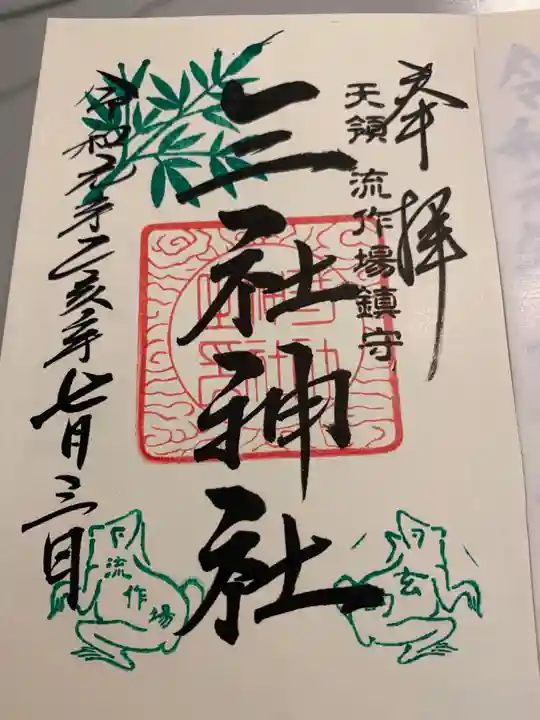 奉拝
天領 流作場鎮守
三社神社
令和元年乙亥年七月三日
流作場
玄